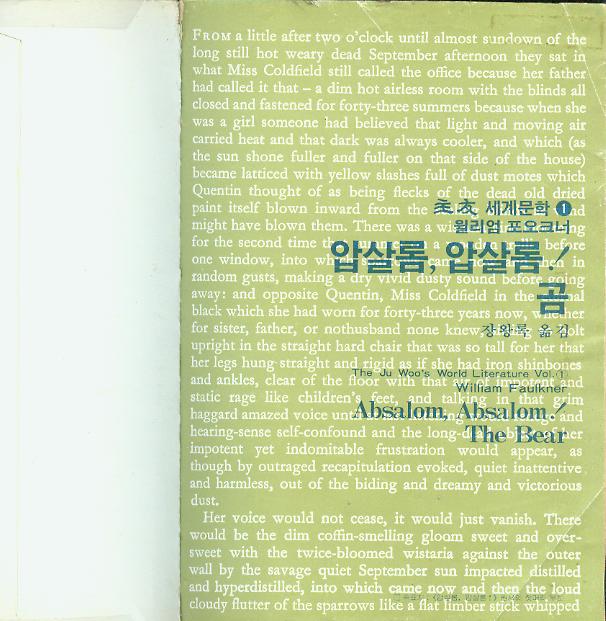 FROM a little after two o'clock until almost sundown of the
long still hot weary dead September afternoon they sat in
what Miss Coldfield still called the office because her father
had called it that – a dim hot airless room with the blinds all
closed and fastened for forty-three summers because when she
was a girl someone had believed that light and moving air
carried heat and that dark was always cooler, and which (as
the sun shone fuller and fuller on that side of the house)
became latticed with yellow slashes full of dust motes which
Quentin thought of as being flecks of the dead old dried
paint itself blown inward from the
might have blown them. There was a
for the second time before
one window, into which in
random gusts, making a dry vivid dusty sound before going
away: and opposite Quentin, Miss Coldfield in the
black which she had worn for forty-three years now, whether
for sister, father, or nothusband none knew,
upright in the straight hard chair that was so tall for her that
her legs hung straight and rigid as if she had iron shinbones
and ankles, clear of the floor with that of impotent and
static rage like children's feet, and talking in that grim
haggard amazed voice and
hearing-sense self-confound and the
impotent yet indomitable frustration would appear, as
though by outraged recapitulation evoked, quiet inattentive
and harmless, out of the biding and dreamy and victorious
dust.
Her voice would not cease, it would just vanish. There
would be the dim coffin-smelling gloom sweet and over-
sweet with the twice-bloomed wistaria against the outer
wall by the savage quiet September sun impacted distilled
and hyperdistilled, into which came now and then the loud
cloudy flutter of the sparrows like a flat limber stick whipped
主友 세계문학 1
윌리엄 포오크너
압살롬, 압살롬!
곰
장왕록 옮김
The Ju Woo's World Literature Vol.①
William Faulkner
Absalom, Absalom!
The Bear